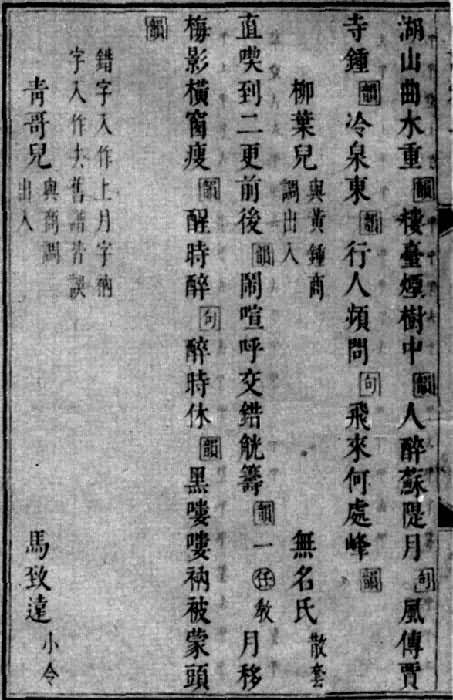 湖山曲水重韻樓臺煙樹中韻人醉蘇隄月句風傳賈
寺鍾韻冷泉東韻行人頻問句飛來何處峰韻
柳葉兒 與黃鍾商調出入 無名氏 散套
直喫到二更前後韻鬧喧呼交錯觥籌韻一任教月移
梅影橫窗瘦韻醒時醉句醉時休韻黑嘍嘍衲被蒙頭
韻
錯字入作上月字衲
字入作去舊譜皆誤
青哥兒 與商調出入 馬致遠 小令